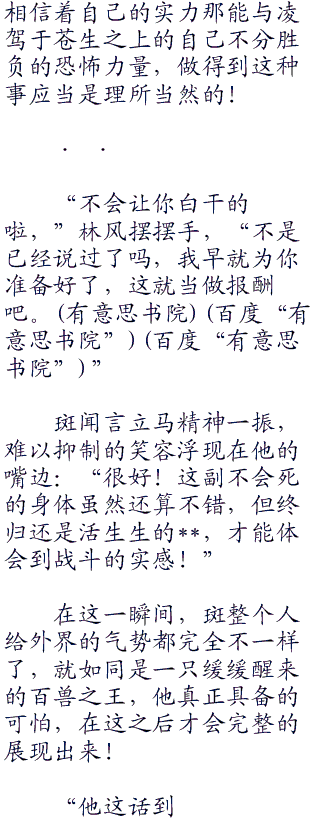 相信着自己的实力那能与凌
驾于苍生之上的自己不分胜
负的恐怖力量，做得到这种
事应当是理所当然的！
． ．
“不会让你白干的
啦，”林风摆摆手，“不是
已经说过了吗，我早就为你
准备好了，这就当做报酬
吧。(有意思书院)(百度“有
意思书院”)(百度“有意思
书院”)”
斑闻言立马精神一振，
难以抑制的笑容浮现在他的
嘴边：“很好！这副不会死
的身体虽然还算不错，但终
归还是活生生的**，才能体
会到战斗的实感！”
在这一瞬间，斑整个人
给外界的气势都完全不一样
了，就如同是一只缓缓醒来
的百兽之王，他真正具备的
可怕，在这之后才会完整的
展现出来！
“他这话到